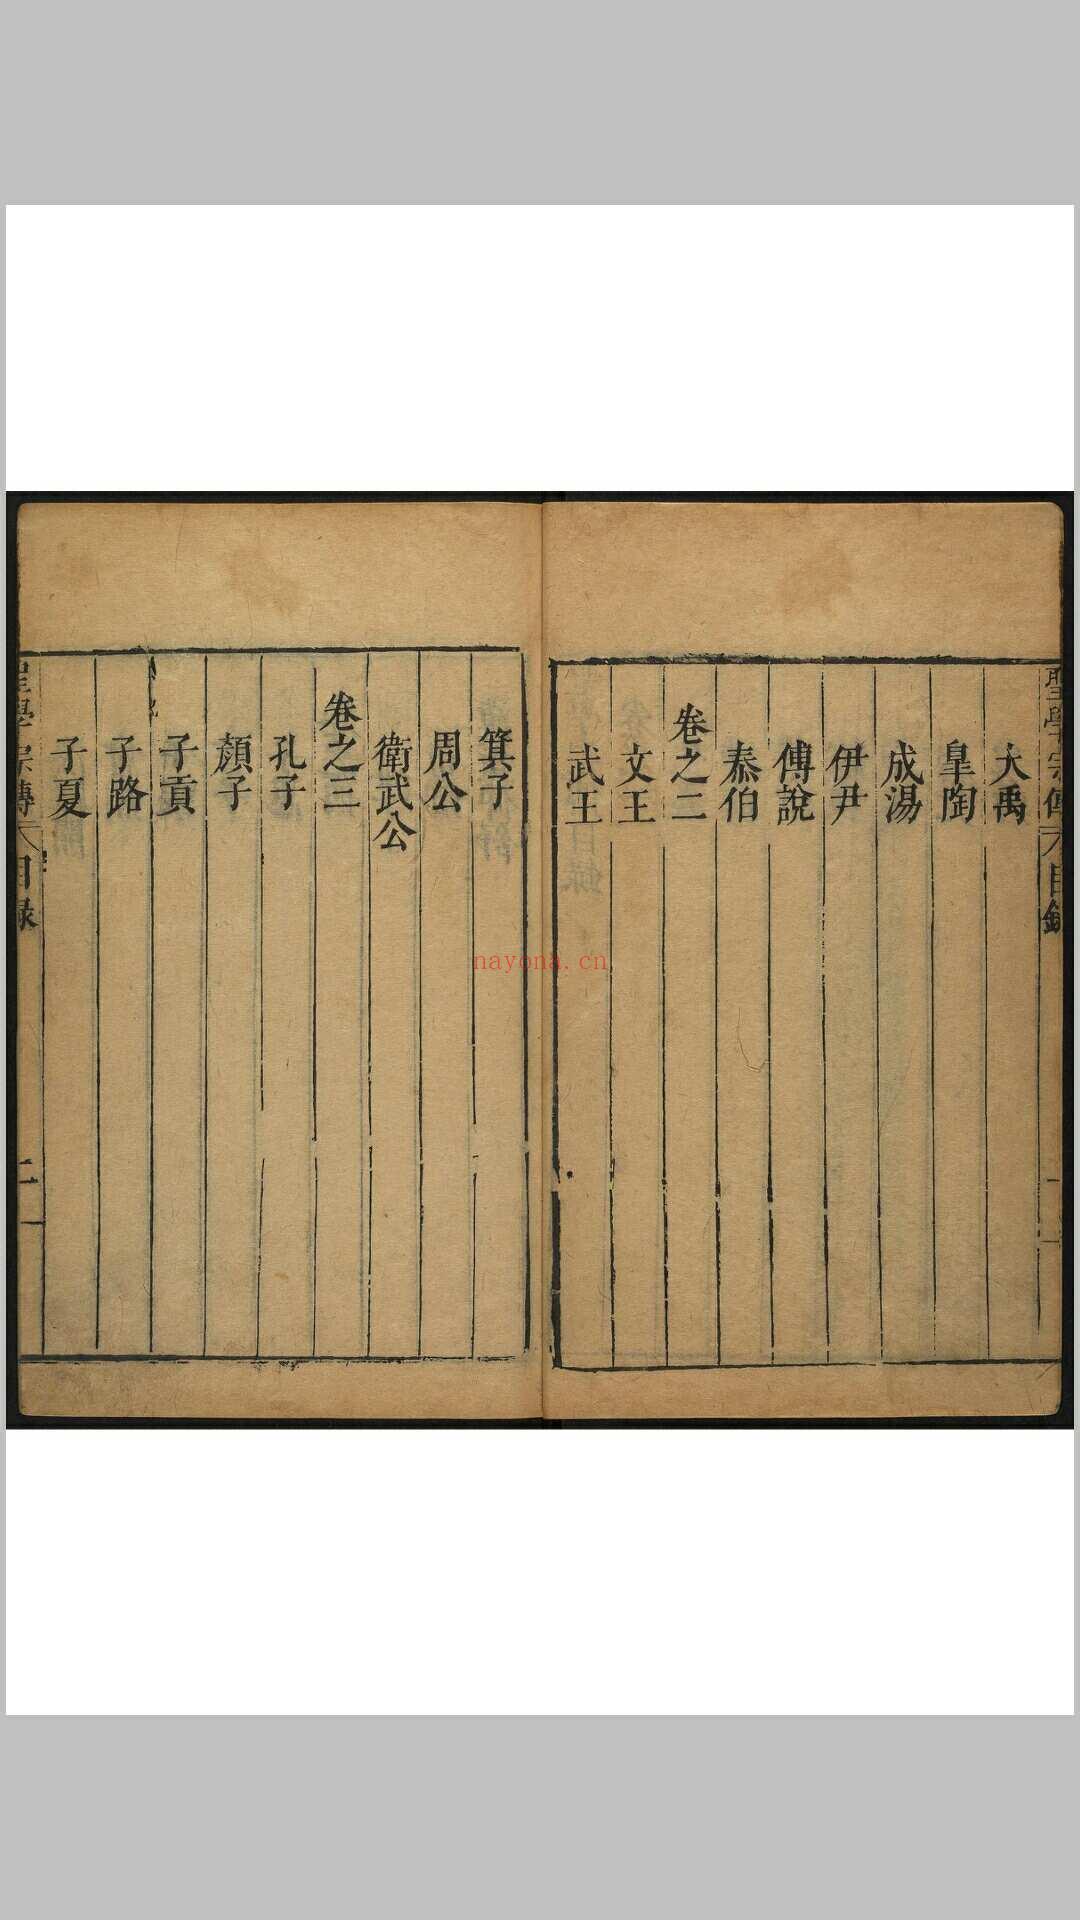 聖學宗傳 目錄 一
大禹
皐陶
成湯
伊尹
傅說
泰伯
卷之二
文王
武王
箕子
周公
衛武公
卷之三
孔子
顏子
子貢
子路
子夏
聖學宗傳 目錄 二
nayona.cn